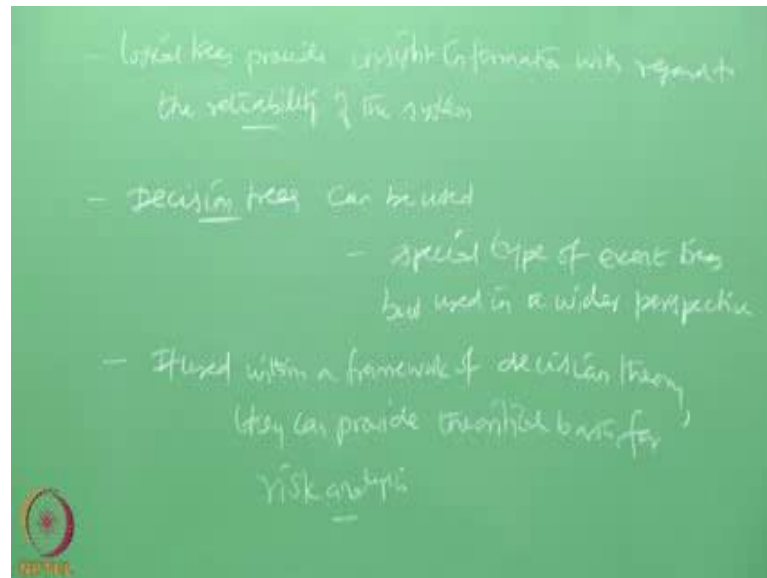 - Logical trees provide insight information with regard to
the reliability of the system
- Decision trees can be used
- special type of event trees
but used in a wider perspective
- If used within a framework of decision theory,
they can provide theoritical basis for
risk analysis
NPTEL